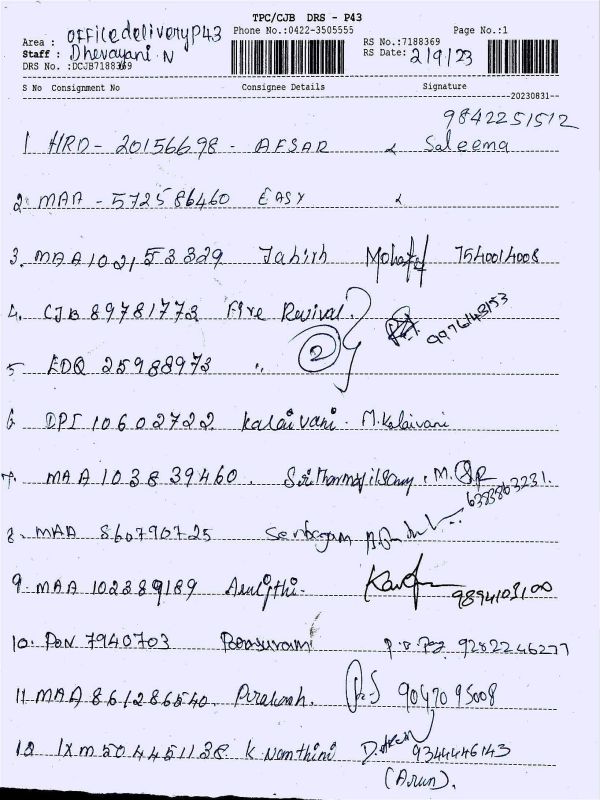 TPC/CJB DRS - P43
Area : Office delivery P43 Phone No.:0422-3505555 Page No.:1
Staff : Dhevayani N RS No.:7188369
DRS No. :DCJB7188369 RS Date: 2/9/23
S No Consignment No Consignee Details Signature
20230831
9842251512
1 HRD - 20156698 - AFSAR Saleema
2. MAA - 572586460 EASY
3. MAA 102153329 Tahirh 7540014008
4. CJB 89781773 Fire Revival. 9976148153
5 EDQ 25988973 " 2
6 DPI 10602722 Kalaivani. M.Kalaivani
7. MAA 103839460. M.
6383863231.
8. MAA 860790725 Senbagam
9. MAA 102389189 Aruljthi. 9894103100
10. PON 7940703 9282246277
11 MAA 861286540. Pirakash. 90470 95008
12 IXM 504451138 K Nanthini 9344446143
(Arun).